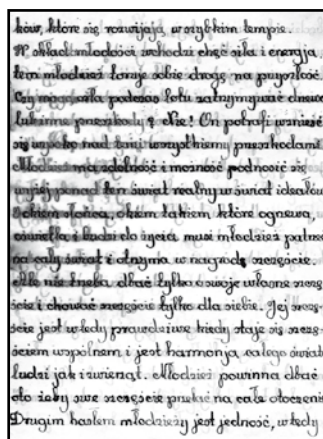 ków, które się rozwijają w szybkim tempie.
W skład młodości wchodzi chęć siła i energja,
tem młodzież toruje sobie drogę na przyszłość.
Czy mogą orła podczas lotu zatrzymywać
lub inne przeszkody? Nie! On potrafi wznieść
się wysoko nad tymi wszystkiemi przeszkodami.
Młodzież ma zdolność i możność podnosić się
wyżej ponad ten świat realny w świat ideałów
Okiem słońca, okiem takiem które ogrzewa,
oświetla i budzi do życia musi młodzież patrzeć
na cały świat i otrzyma w nagrodę szczęście.
Ale nie trzeba dbać tylko o swoje własne szczę-
ście i chować szczęście tylko dla siebie. Jej szczę-
ście jest wtedy prawdziwe kiedy staje się szczę-
ściem wspólnem i jest harmonją całego świata
ludzi jak i zwierząt. Młodzież powinna dbać
oto żeby swe szczęście przelać na całe otoczenie
Drugim hasłem młodzieży jest jedność, wtedy